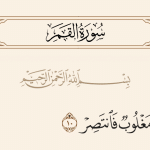 سُورَةُ القَمَرِ
بِسْمِ اللَّهِ الرَّحْمَنِ الرَّحِيمِ
مَغْلُوبٌ فَانتَصِرْ ١٠